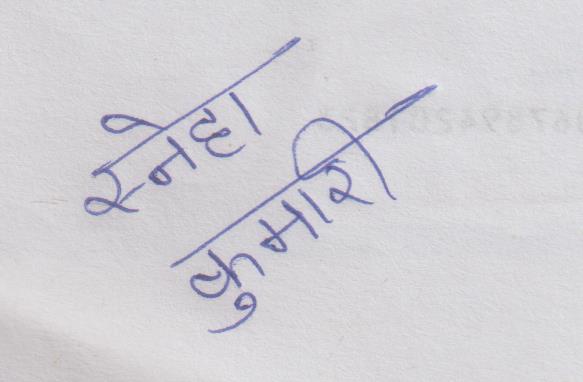 स्नेहा
कुमारी